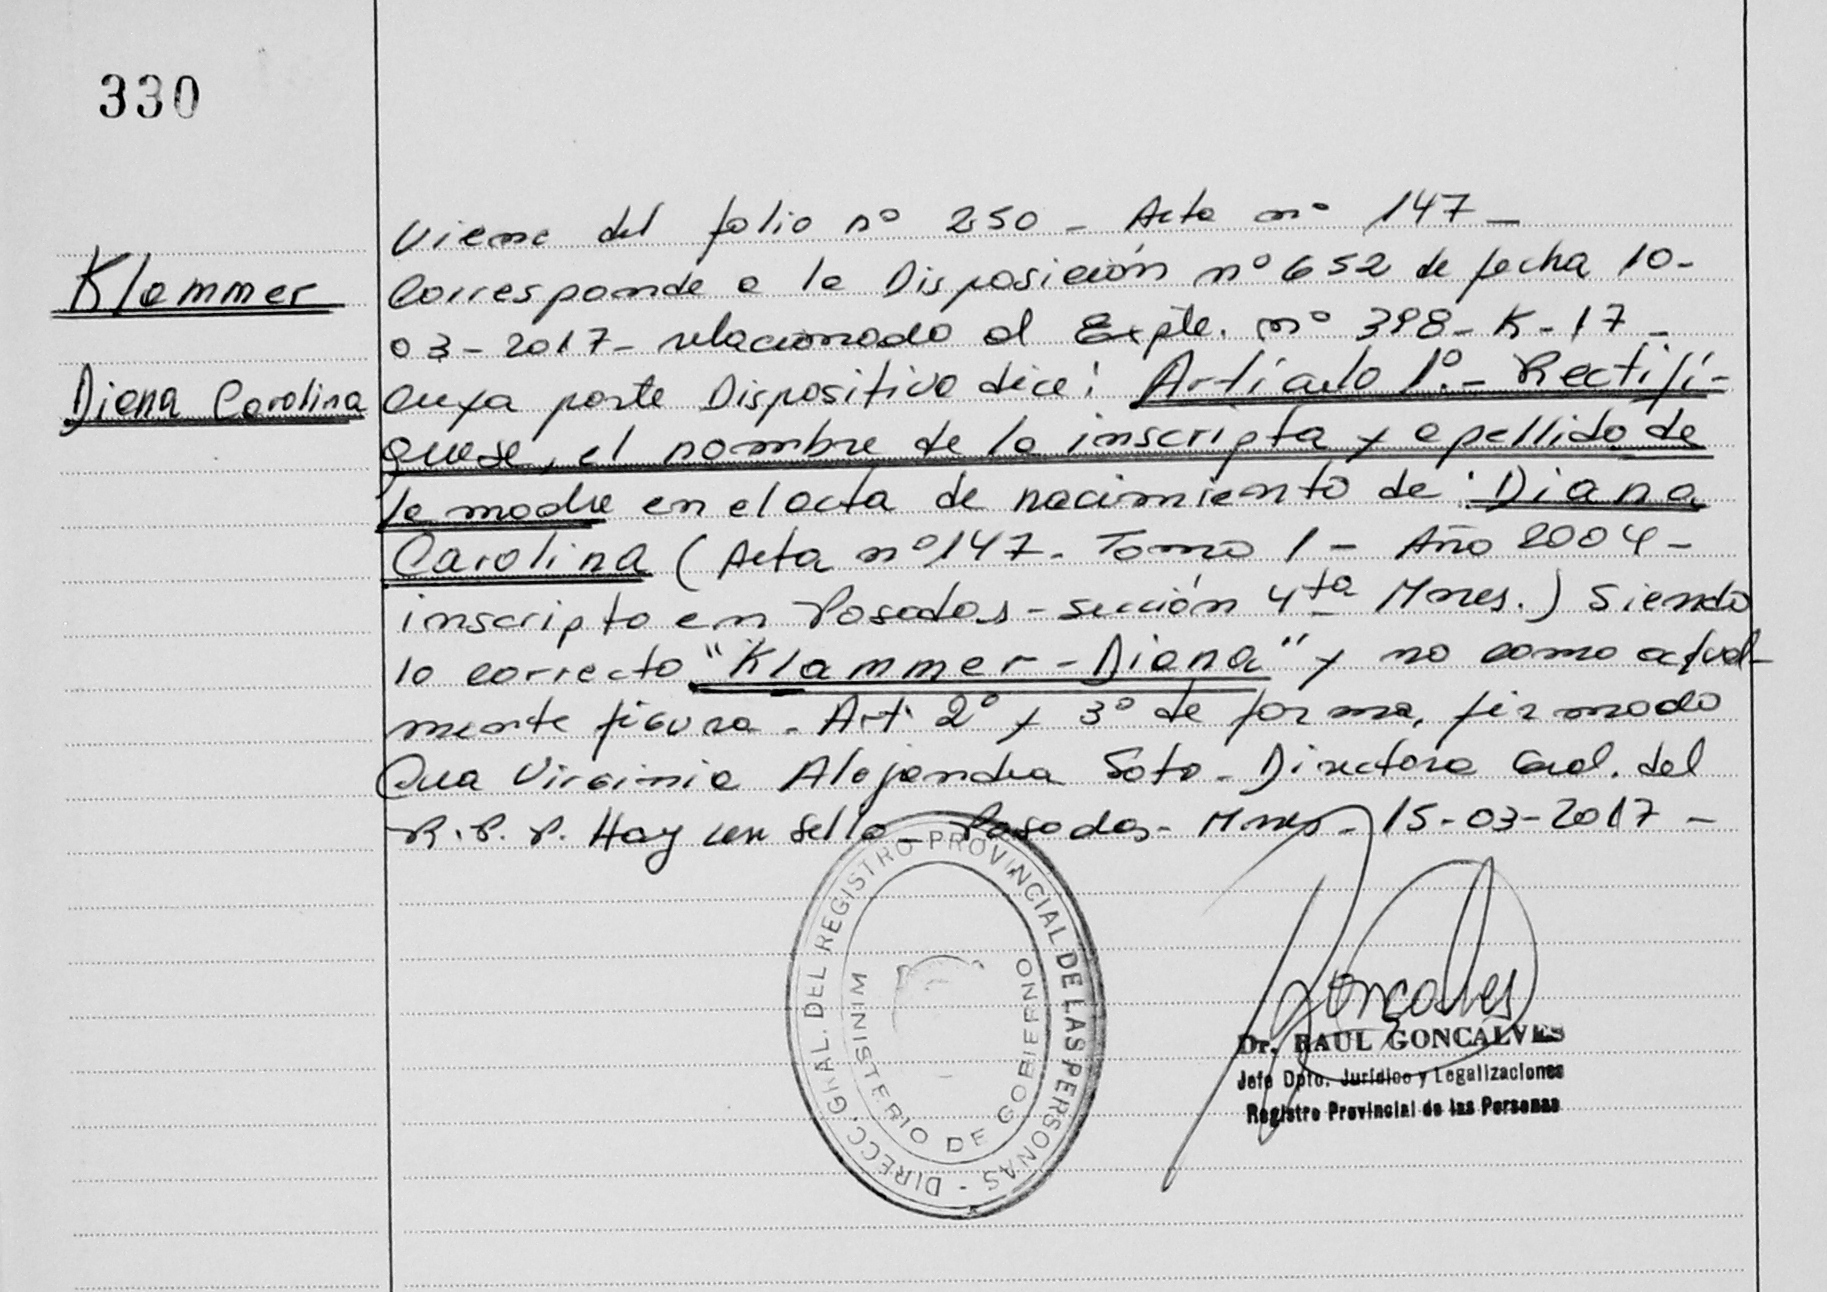 330
Klammer
Diana Carolina
Viene del folio nº 250 - Acta nº 147 -
Corresponde a la Disposición nº 652 de fecha 10-
03-2017- relacionado al Expte. nº 398-K-17-
Cuya parte Dispositiva dice: Artículo 1º.- Rectifí-
quese, el nombre de la inscripta y apellido de
la madre en el acta de nacimiento de Diana
Carolina (Acta nº 147- Tomo 1 - Año 2004 -
inscripto en Posadas - sección 4ta Mnes.) Siendo
lo correcto "Klammer - Diana" y no como actual-
mente figura - Art. 2º y 3º de forma, firmado
Dra Virginia Alejandra Soto - Directora Gral. del
R.P.P. Hay un Sello - Posadas - Mnes - 15-03-2017 -
DIRECC. GRAL. DEL REGISTRO PROVINCIAL DE LAS PERSONAS -
MINISTERIO DE GOBIERNO
Gonçalves
Dr. RAUL GONCALVES
Jefe Dpto. Jurídico y Legalizaciones
Registro Provincial de las Personas